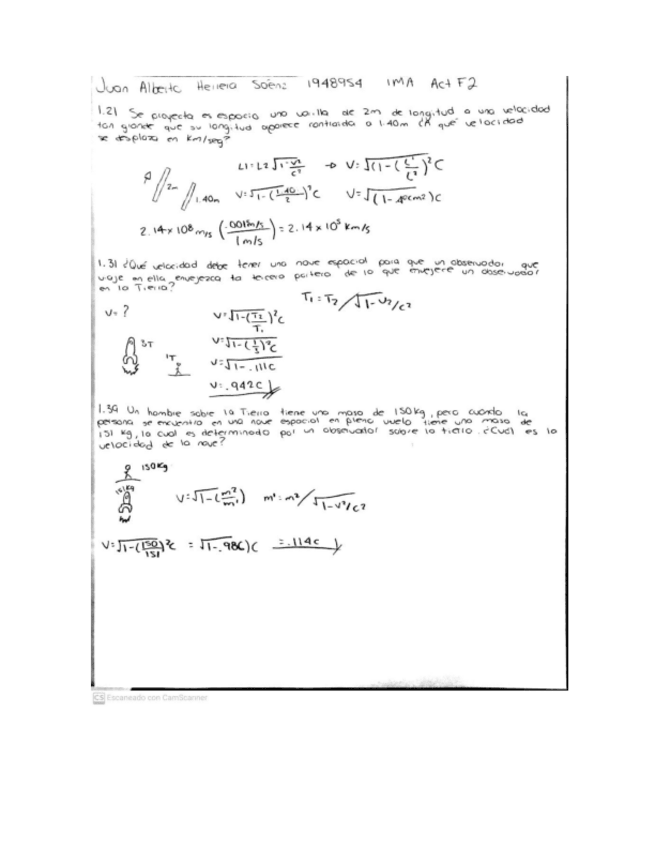 Juan Alberto Herrera Saenz 1948954 IMA Act F2
1.21 Se proyecta es espacio una varilla de 2m de longitud a una velocidad
tan grande que su longitud aparece contraida a 1.40m ¿A qué velocidad
se desplaza en Km/seg?
L1 = L2 √1 - V²/C² → V = √(1 - (L'/L²)² C
2m
1.40m
V = √1 - (1.40/2)² C V = √(1 - .49cm²) C
2.14 x 10⁸ m/s (.001 m/s / 1 m/s) = 2.14 x 10⁵ Km/s
1.31 ¿Qué velocidad debe tener una nave espacial para que un observador que
viaje en ella envejezca la tercera parte de lo que envejece un observador
en la Tierra?
T1 = T2 / √1 - V²/C²
V = ?
V = √1 - (T2/T1)² C
3T
1T
V = √1 - (1/3)² C
V = √1 - .111 C
V = .942 C
1.39 Un hombre sobre la Tierra tiene una masa de 150 kg, pero cuando la
persona se encuentra en una nave espacial en pleno vuelo tiene una masa de
151 kg, la cual es determinada por un observador sobre la tierra. ¿Cuál es la
velocidad de la nave?
150 Kg
151 Kg
V = √1 - (m²/m¹) m¹ = m² / √1 - V²/C²
V = √1 - (150/151)² C = √1 - .986) C = .114 C
CS Escaneado con CamScanner